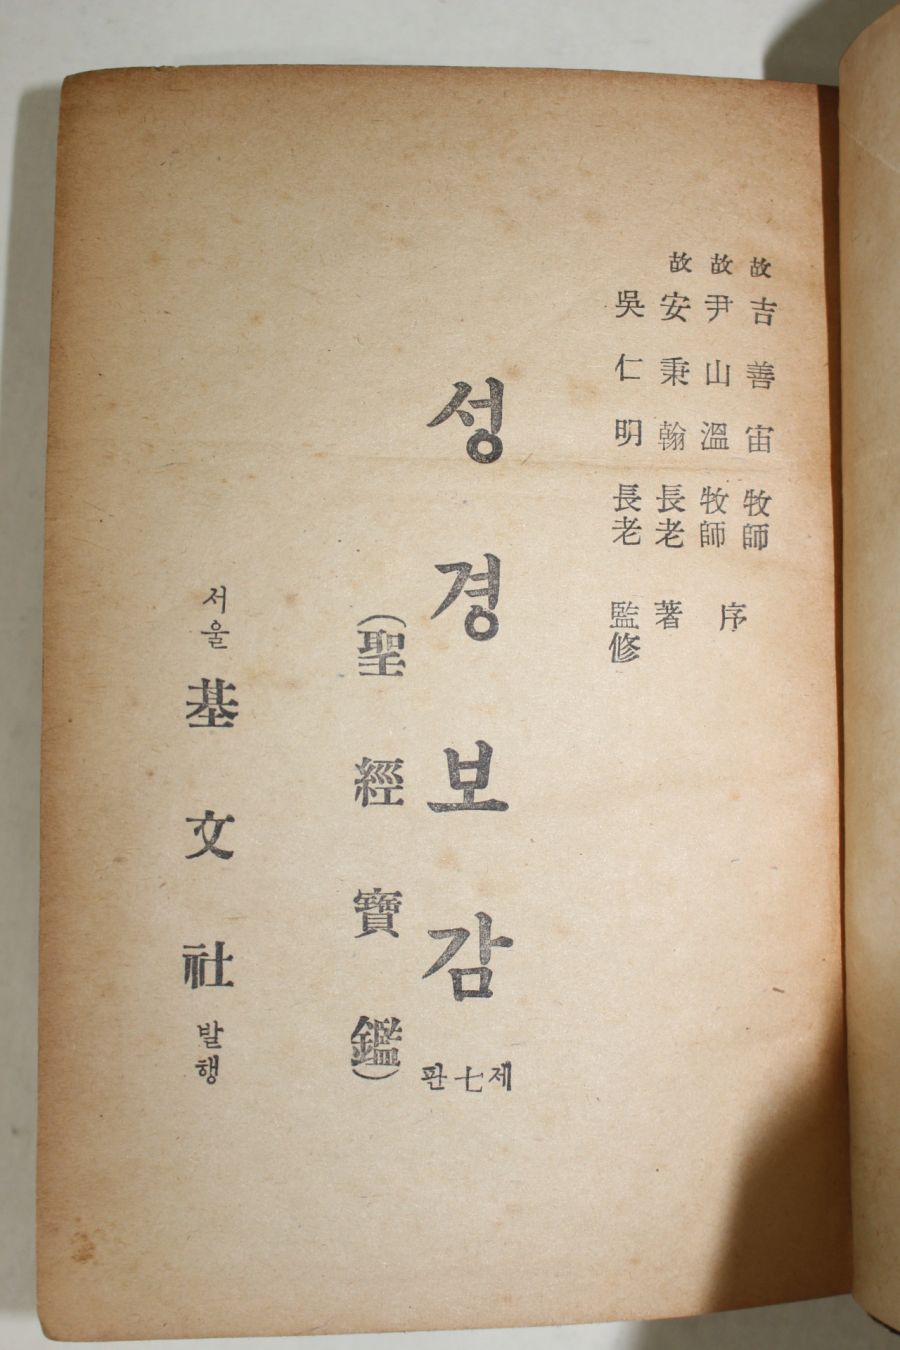 故 吉善宙 牧師 序
故 尹山溫 牧師
故 安秉翰 長老 著
吳仁明 長老 監修
성경보감
제七판
(聖經寶鑑)
서울 基文社 발행